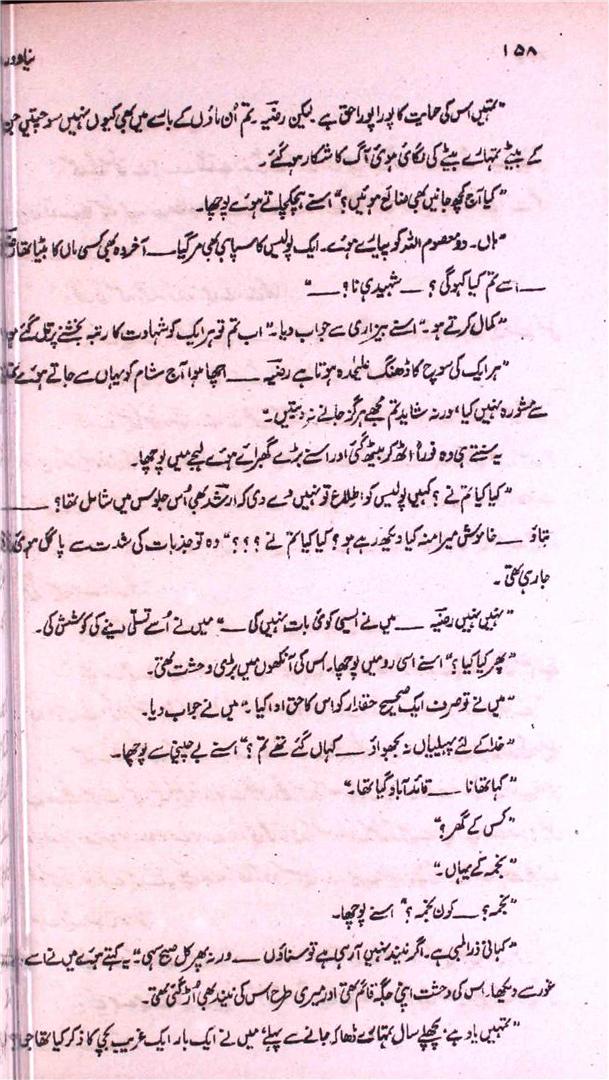 ۱۵۸
نیا دور
"تمہیں اس کی حمایت کا پورا پورا حق ہے لیکن رضیہ تم اُن ماؤں کے بارے میں بھی کیوں نہیں سوچتیں جن
کے بیٹے تمہارے بیٹے کی لگائی ہوئی آگ کا شکار ہو گئے۔
"کیا آج کچھ جانیں بھی ضائع ہوئیں؟" اسنے ہچکچاتے ہوئے پوچھا۔
"ہاں۔ دو معصوم اللہ کو پیارے ہوئے۔ ایک پولیس کا سپاہی بھی مر گیا ــــ آخر وہ بھی کسی ماں کا بیٹا تھا
ــــ اسے تم کیا کہو گی؟ ــ شہید ہی نا؟ ــــ"
"کمال کرتے ہو۔" اسنے بیزاری سے جواب دیا۔ "اب تم تو ہر ایک کو شہادت کا رتبہ بخشنے پر تل گئے ہو
"ہر ایک کی سوچ کا ڈھنگ علیحدہ ہوتا ہے رضیہ ــــ اچھا ہوا آج شام کو یہاں سے جاتے ہوئے
سے مشورہ نہیں کیا، ورنہ شاید تم مجھے ہرگز جانے نہ دیتیں۔"
یہ سنتے ہی وہ فوراً اٹھ کر بیٹھ گئی اور اسنے بڑے گھبرائے ہوئے لہجے میں پوچھا۔
"کیا کیا تم نے؟ کہیں پولیس کو اطلاع تو نہیں دے دی کہ ارشد بھی اُس جلوس میں شامل تھا؟ ــــ
بتاؤ ــــ خاموش میرا منہ کیا دیکھ رہے ہو؟ کیا کیا تم نے؟؟؟" وہ تو جذبات کی شدت سے پاگل ہوئی
جا رہی تھی۔
"نہیں نہیں رضیہ ــــ میں نے ایسی کوئی بات نہیں کی ــــ" میں نے اُسے تسلی دینے کی کوشش کی۔
"پھر کیا کیا؟" اسنے اسی رو میں پوچھا۔ اس کی آنکھوں میں بڑی وحشت تھی۔
"میں نے تو صرف ایک صحیح حقدار کو اس کا حق ادا کیا۔" میں نے جواب دیا۔
"خدا کے لئے پہیلیاں نہ بجھواؤ ــــ کہاں گئے تھے تم؟" اسنے بے چینی سے پوچھا۔
"کہا تھا نا ــــ قائدآباد گیا تھا۔"
"کس کے گھر؟"
"نجمہ کے یہاں۔"
"نجمہ؟ ــــ کون نجمہ؟" اسنے پوچھا۔
"کہانی ذرا لمبی ہے۔ اگر نیند نہیں آ رہی ہے تو سناؤں ــــ ورنہ پھر کل صبح سہی۔" یہ کہتے ہوئے میں نے اسے
غور سے دیکھا۔ اس کی وحشت اپنی جگہ قائم تھی اور میری طرح اس کی نیند بھی اُڑ گئی تھی۔
"تمہیں یاد ہے۔ پچھلے سال تمہارے ڈھاکہ جانے سے پہلے، میں نے ایک بار ایک غریب بچی کا ذکر کیا تھا